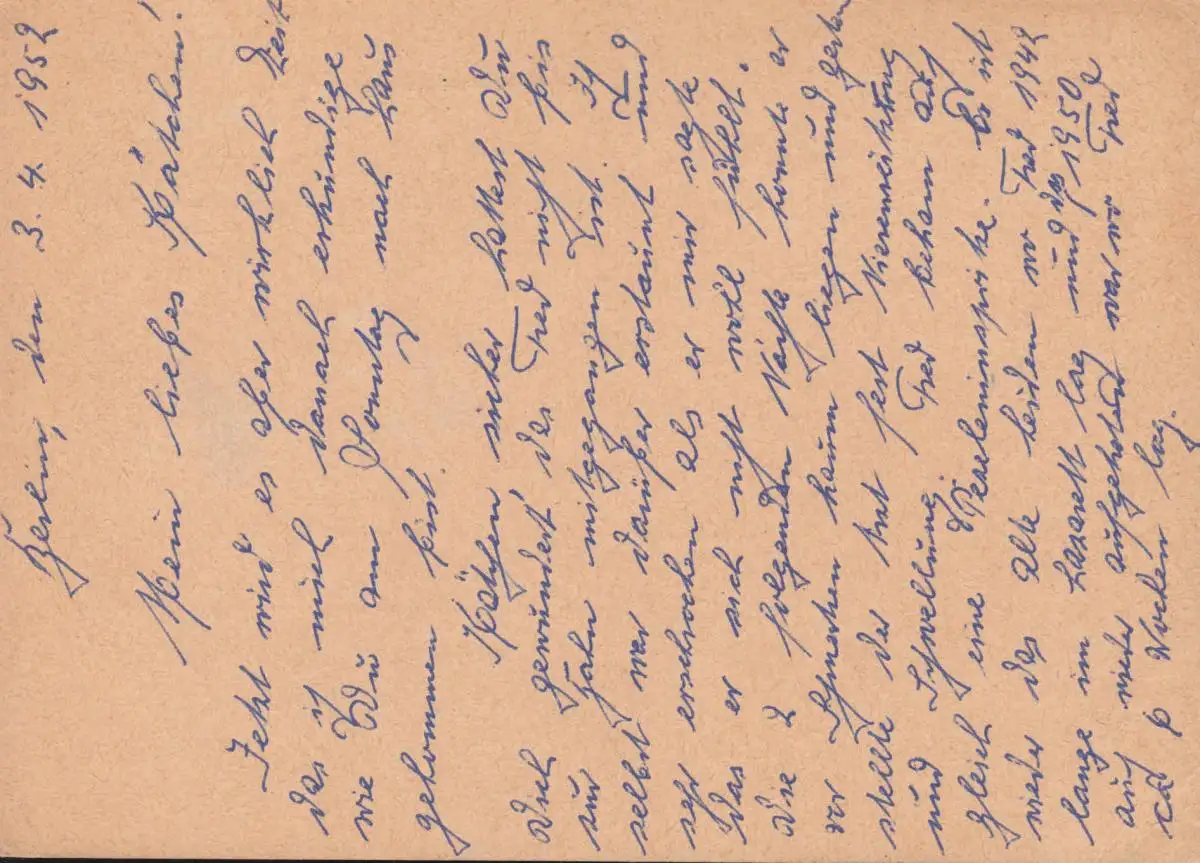 Berlin, den 3. 4. 1952
Mein liebes Kätchen!
Jetzt wird es aber wirklich Zeit
das ich mich danach erkundige
wie Du am Sonntag nach Haus
gekommen bist.
Kätchen sicher hattest Du
Dich gewundert, das Fred nicht bis
zur Bahn mitgegangen ist. Ich
selbst war darüber erstaunt und
sehr erschrocken als er mir sagte
das er sich nicht wohl fühlt.
Die 2 folgenden Nächte konnte er
vor Schmerzen kaum liegen und gestern
stellte der Arzt fest Nierenreizung
und Schwellung. Fred bekam auch
gleich eine Penezelinspritze. Es ist
wieder das alte Leiden wo Fred 1942
lange im Lazarett lag und das 1950
auch wieder aufgetreten war wo Fred
ca 6 Wochen lag.